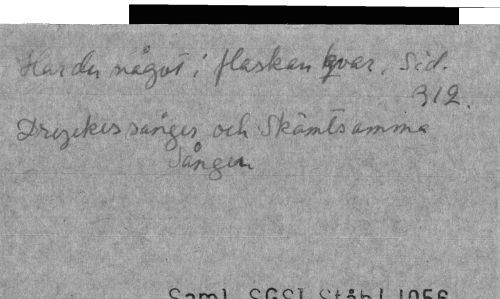 Har du något i flaskan qvar. Sid.
312.
Dryckessånger och Skämtsamma
Sånger
Saml. SGS1 Ståhl 1956